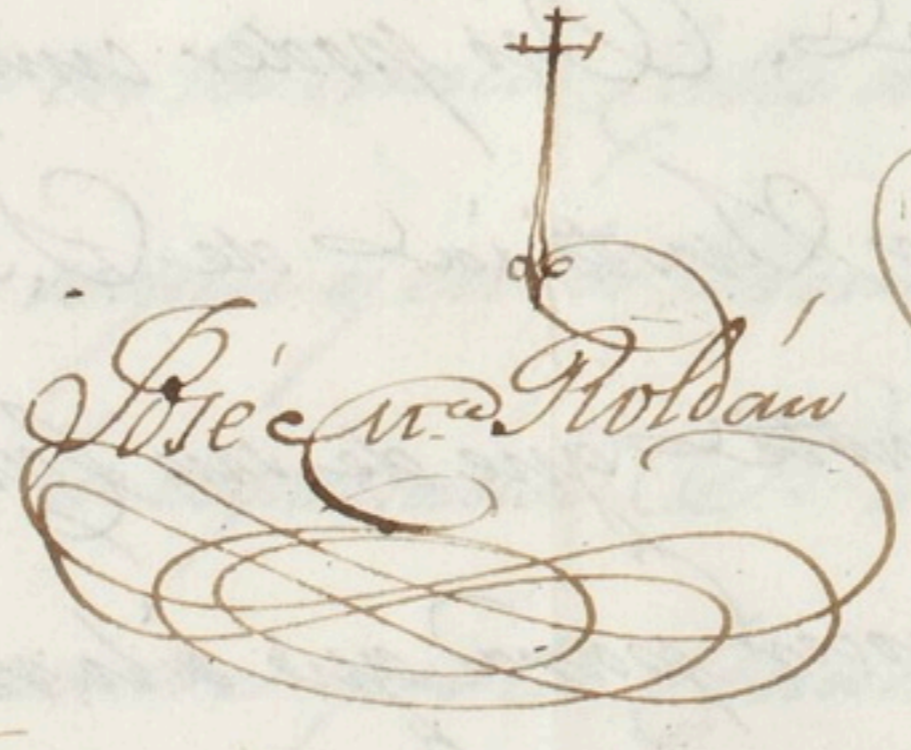 de
José Mª Roldán